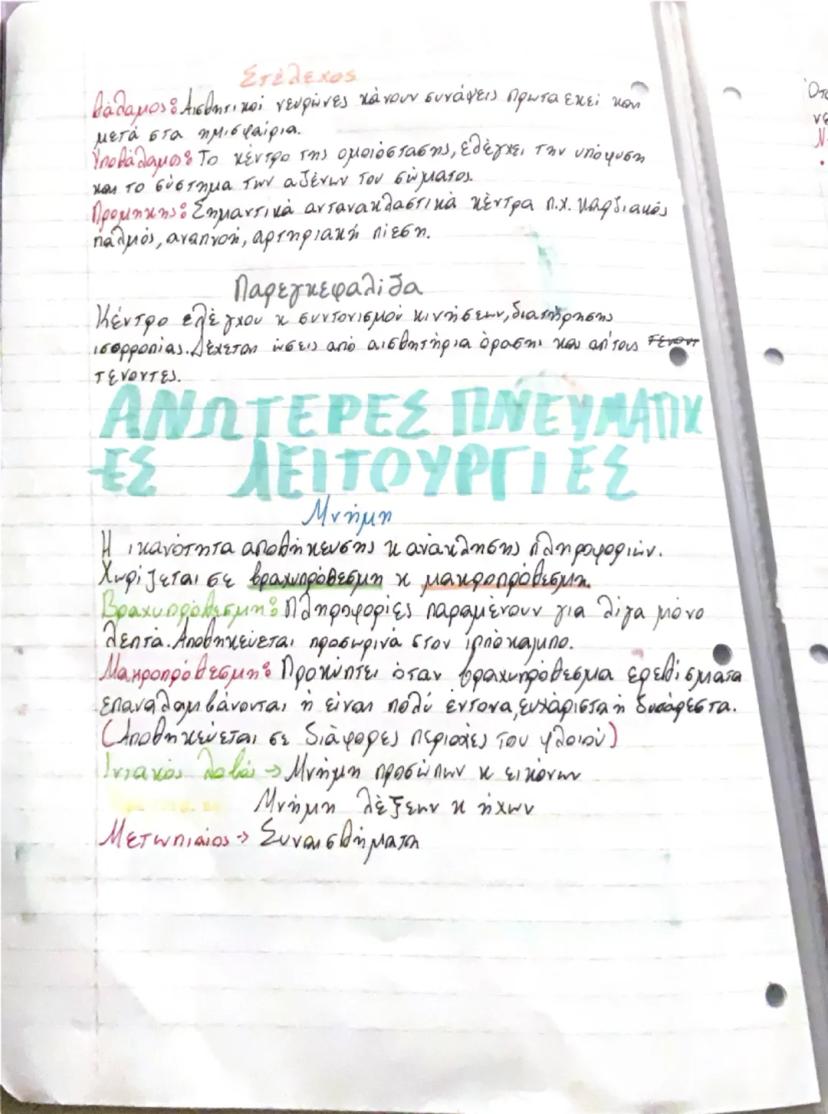 Στέλεχος
Θάλαμος: Αισθητικοί νευρώνες κάνουν συνάψεις πρώτα εκεί και
μετά στα ημισφαίρια.
Υποθάλαμος: Το κέντρο της ομοιόστασης, ελέγχει την υπόφυση
και το σύστημα των αξένων του σώματος.
Προμήκης: Σημαντικά αντανακλαστικά κέντρα π.χ. καρδιακός
παλμός, αναπνοή, αρτηριακή πίεση.
Παρεγκεφαλίδα
Κέντρο ελέγχου κ συντονισμού κινήσεων, διατήρησης
ισορροπίας. Δέχεται ώσεις από αισθητήρια όρασης και απ'τους
τένοντες.
ΑΝΩΤΕΡΕΣ ΠΝΕΥΜΑΤΙΚ
-ΕΣ ΛΕΙΤΟΥΡΓΙΕΣ
Μνήμη
Η ικανότητα αποθήκευσης κ ανάκλησης πληροφοριών.
Χωρίζεται σε βραχυπρόθεσμη κ μακροπρόθεσμη.
Βραχυπρόθεσμη: Πληροφορίες παραμένουν για λίγα μόνο
λεπτά. Αποθηκεύεται προσωρινά στον ιππόκαμπο.
Μακροπρόθεσμη: Προκύπτει όταν βραχυπρόθεσμα ερεθίσματα
επαναλαμβάνονται ή είναι πολύ έντονα, ευχάριστα ή δυσάρεστα.
(Αποθηκεύεται σε διάφορες περιοχές του φλοιού)
Ινιακός λοβός → Μνήμη προσώπων κ εικόνων
Μνήμη λέξεων κ ήχων
Μετωπιαίος → Συναισθήματα